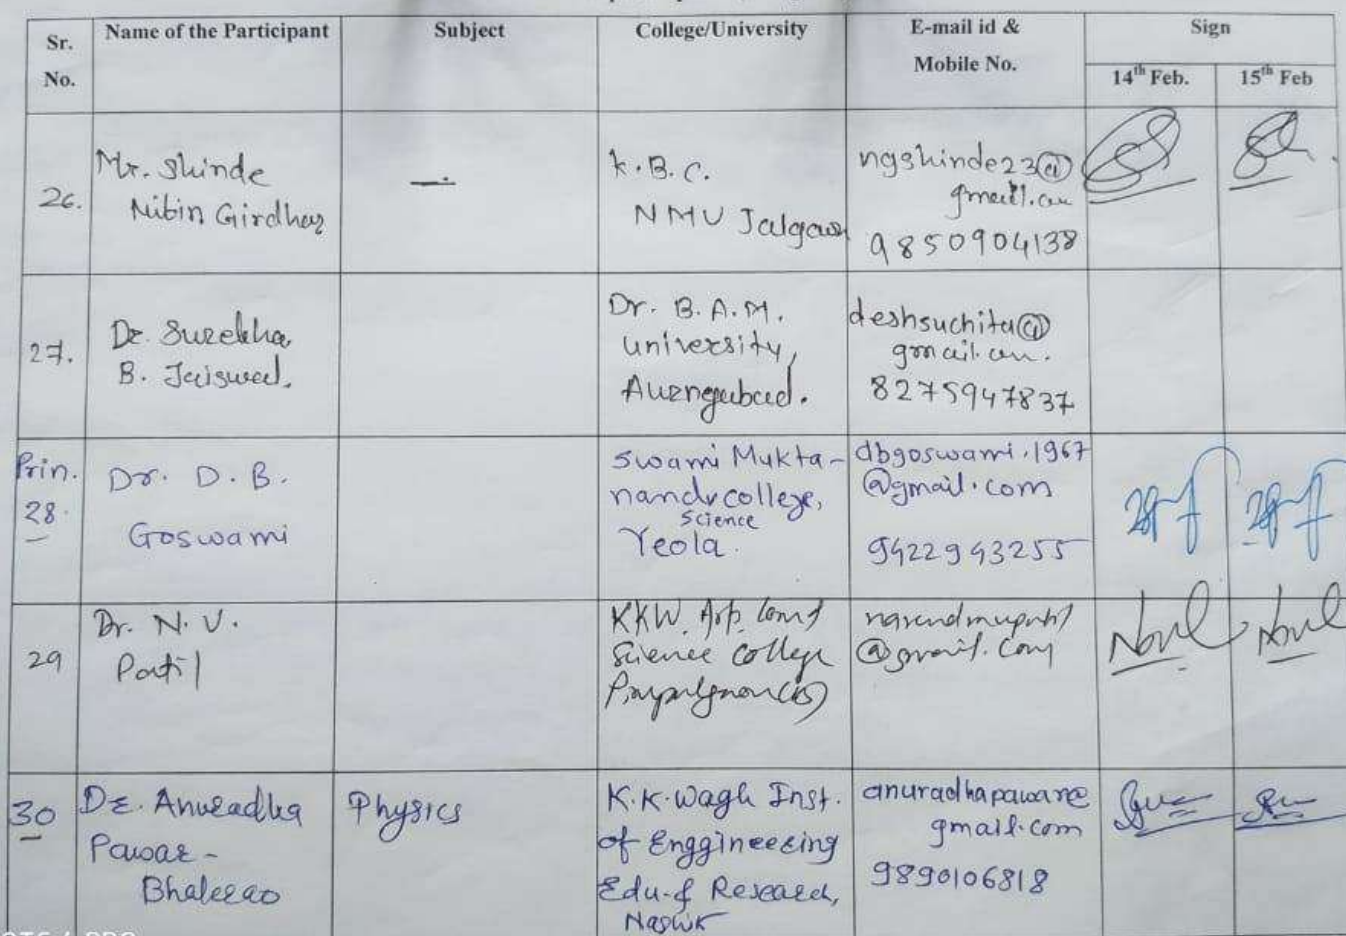 Sr.
No.
Name of the Participant
Subject
College/University
E-mail id &
Mobile No.
Sign
14th Feb.
15th Feb
26.
Mr. Shinde
Nitin Girdhar
—.
K.B.C.
NMU Jalgaon
ngshinde23@
gmail.com
9850904138
27.
Dr. Surekha
B. Jaiswal.
Dr. B.A.M.
University,
Aurngabad.
deshsuchita@
gmail.com.
8275947837
Prin.
28.
Dr. D. B.
Goswami
Swami Mukta-
nand college,
Science
Yeola.
dbgoswami.1967
@gmail.com
9422943255
29
Dr. N. V.
Patil
KKW, Arts, Com &
Science College
@gmail.com
30
Dr. Anuradha
Pawar-
Bhalerao
Physics
K.K.Wagh Inst.
of Enggineering
Edu. & Research,
Nashik
anuradhapawar@
gmail.com
9890106818